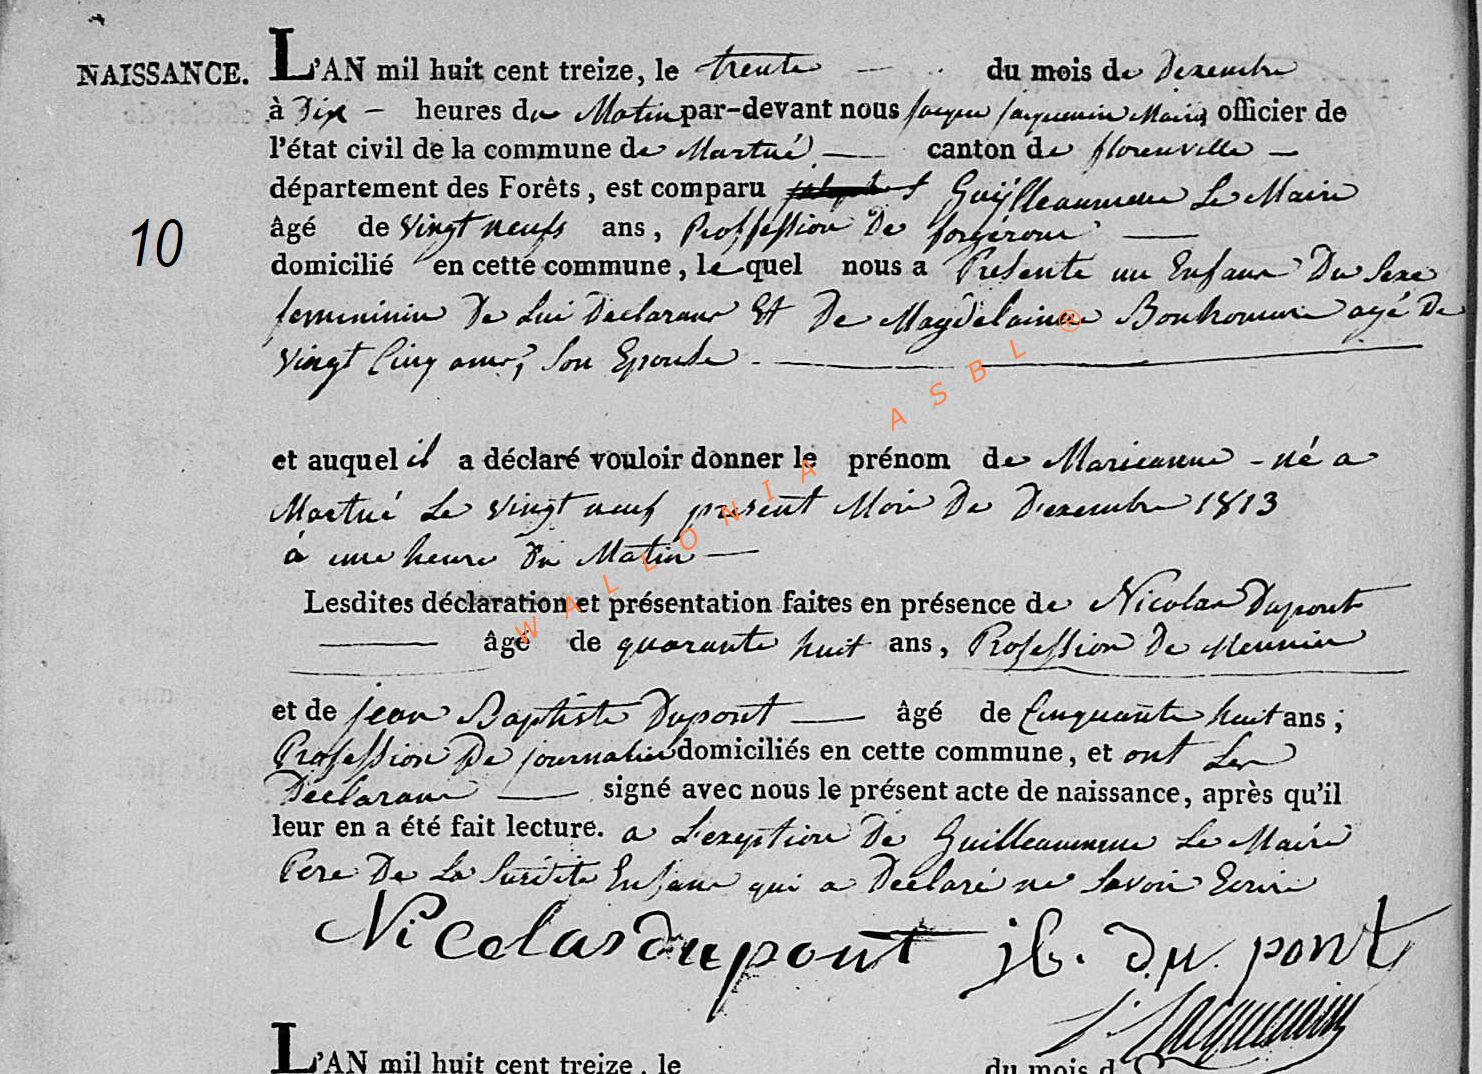 NAISSANCE. L'AN mil huit cent treize, le trente du mois de Dexembre
à Dix heures du Matin par-devant nous jacque jacquemin Maire officier de
l'état civil de la commune de Martué canton de florenville
département des Forêts, est comparu Guÿlleaumme Le Maire
âgé de vingt neufs ans, Proffession De forgeron
10
domicilié en cette commune, lequel nous a Présenté un Enfant Du Sexe
femininin De Lui Declarant Et De Magdelainne Bonhomme agé De
vingt Cinq ans, Son Epouse
et auquel il a déclaré vouloir donner le prénom de Marieanne - né a
Martué Le vingt neuf present Mois De Dexembre 1813
à une heure Du Matin
Lesdites déclaration et présentation faites en présence de Nicolas Dupont
âgé de quarante huit ans, Profession De Meunier
et de jean Baptiste Dupont âgé de Cinquante huit ans;
Profession De journalier domiciliés en cette commune, et ont Les
Declarant signé avec nous le présent acte de naissance, après qu'il
leur en a été fait lecture. a L'exeption De Guilleaumme Le Maire
Pere De La Susdite Enfant qui a Declaré ne Savoir Ecrire
Nicolas dupont jb. du pont
J. Jacquemin
L'AN mil huit cent treize, le du mois d
WALLONIA ASBL ®